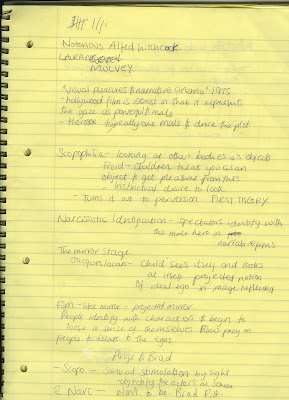 Notorious Alfred Hitchcock
LAURA
MULVEY
"Visual pleasures & narrative cinema" 1975
- hollywood film is sexist in that it represents
the gaze as powerful & male
- Heroes typically are male & drive the plot
Scopophilia - looking at other bodies as objects
Freud - children treat you as an
object & get pleasure from this
- instinctual desire to look
- Turns it to perversion FIRST THEORY
Narcissistic Identification - spectators identify with
the male hero in
narrative films
The mirror stage
Jacques Lacan - Child sees itself and looks
at itself projected notion
of ideal ego in image reflected
Film - like mirror - projected mirror.
People identify with characters & begin to
loose a sense of themselves. Films prey on
people to relate to the egos.
Ange & Brad
- Scopo - sexual stimulation by sight
objectify the actors on screen
2 Narc - Want to be Brad Pitt